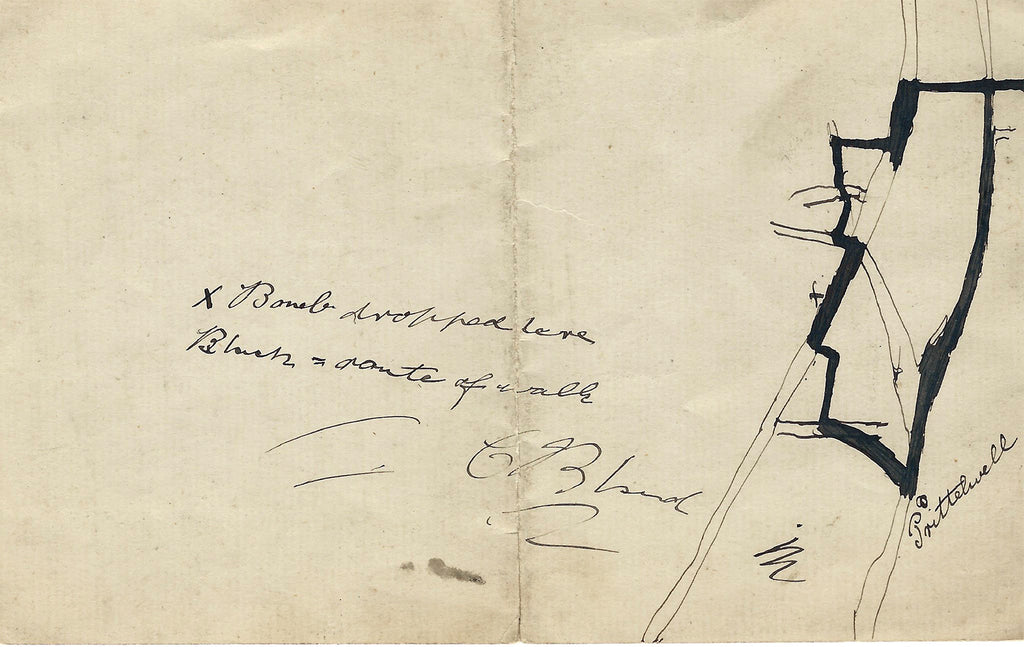 X Bomb dropped here
Black = route of walk
C Bland
Prittelwell